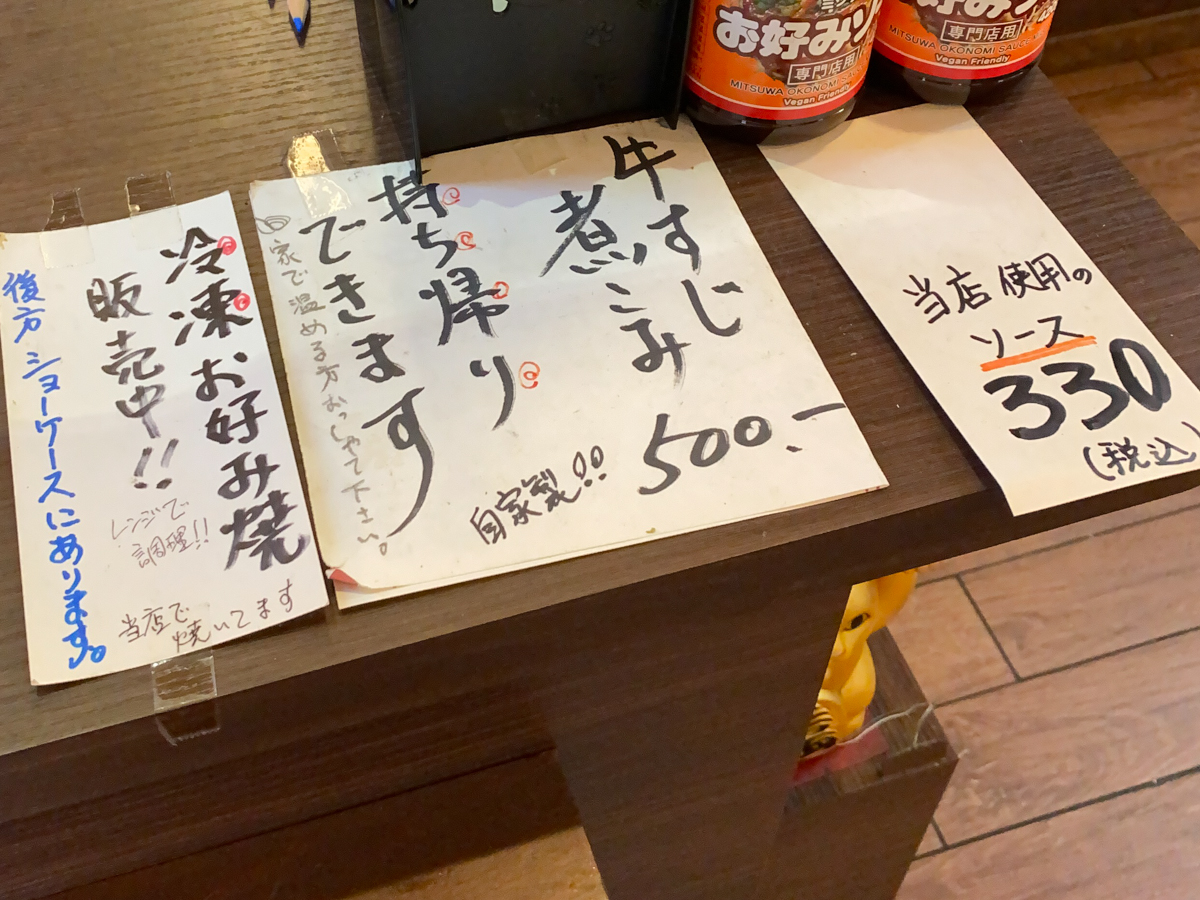 冷凍お好み焼
販売中!!
レンジで
調理!!
当店で
焼いてます
後方ショーケースにあります。
牛すじ
煮こみ
500.-
自家製!!
持ち帰り
できます
家で温める方おっしゃて下さい。
お好みソ
専門店用
MITSUWA OKONOMI SAUCE
Vegan Friendly
お好みソ
専門店用
MITSUWA OKONOMI SAUCE
Vegan Friendly
当店使用の
ソース
330
(税込